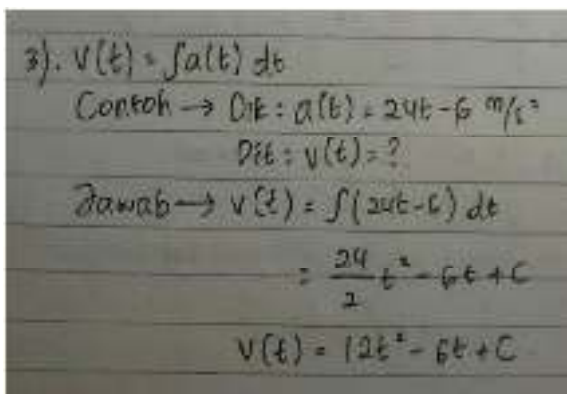 3). V(t) = ∫a(t) dt
Contoh → Dik : a(t) = 24t - 6 m/s²
Dit : v(t) = ?
Jawab → V(t) = ∫(24t-6) dt
= 24/2 t² - 6t + C
V(t) = 12t² - 6t + C